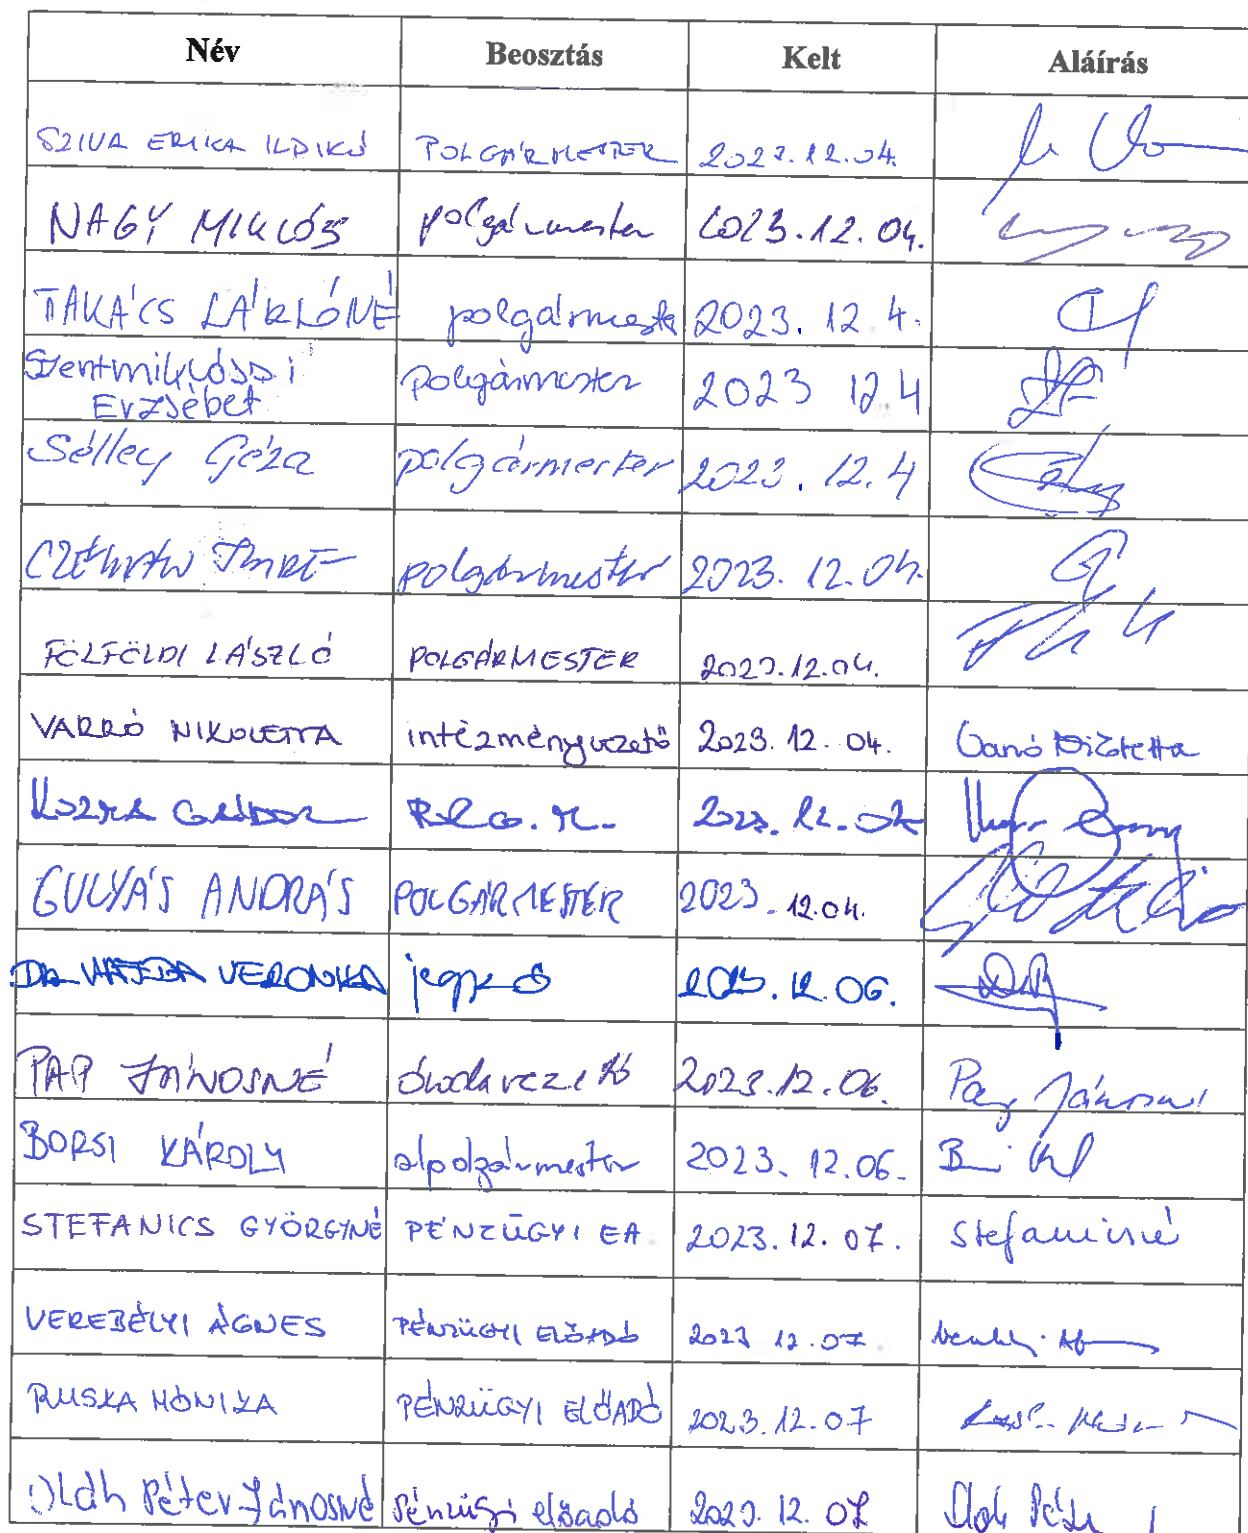 Név Beosztás Kelt Aláírás
SZIVA ERIKA ILDIKÓ POLGÁRMESTER 2023.12.04.
NAGY MIKLÓS polgármester 2023.12.04.
TAKÁCS LÁSZLÓNÉ polgármester 2023. 12 4.
Szentmiklóssi polgármester 2023 12 4
Erzsébet
Sélley Géza polgármester 2023. 12. 4
IMRE polgármester 2023. 12. 04.
FÖLFÖLDI LÁSZLÓ POLGÁRMESTER 2023.12.04.
VARRÓ NIKOLETTA intézményvezető 2023. 12. 04. Varró Nikoletta
KOZMA GÁBOR P.L.G.M. 2023. 12. 04
GULYÁS ANDRÁS POLGÁRMESTER 2023. 12.04.
DR. HAJBA VERONIKA jegyző 2023. 12. 06.
PAP JÁNOSNÉ óvodavezető 2023.12.06. Pap Jánosné
BORSI KÁROLY alpolgármester 2023. 12.06.
STEFANICS GYÖRGYNÉ PÉNZÜGYI EA. 2023. 12. 07. Stefanicsné
VEREBÉLYI ÁGNES PÉNZÜGYI ELŐADÓ 2023 12.07.
RUSKA MÓNIKA PÉNZÜGYI ELŐADÓ 2023.12.07
Oláh Péter Jánosné Pénzügyi előadó 2023. 12. 07 Oláh Péter